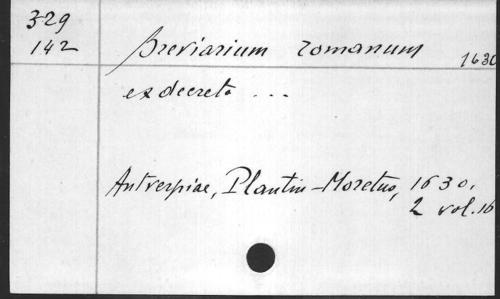 329
142
Breviarium romanum
1630
ex decreto ...
Antverpiae, Plantin-Moretus, 1630.
2 vol. 16